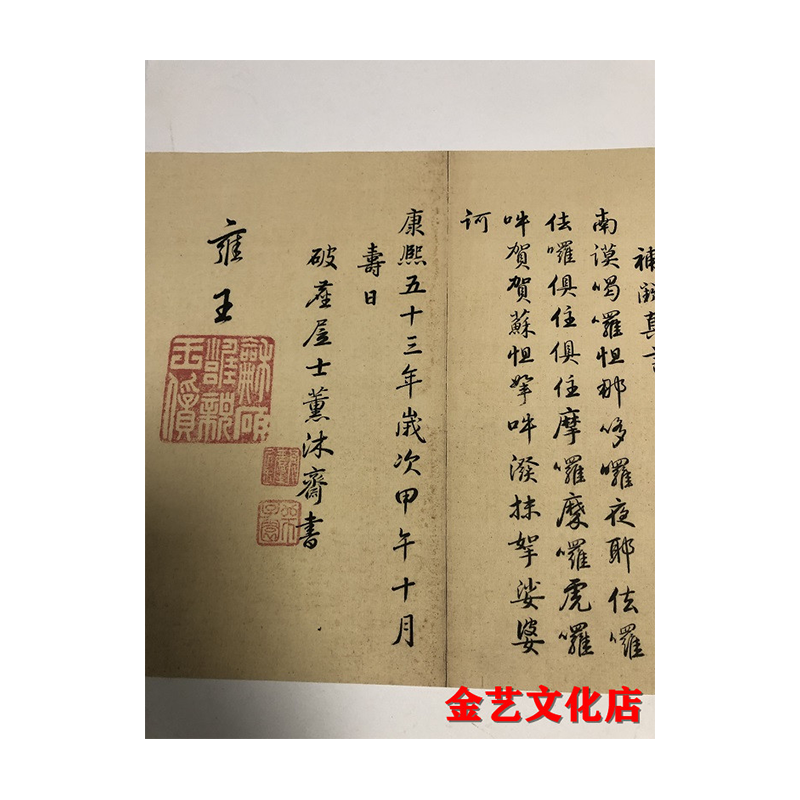 補闕真言
南謨喝囉怛那哆囉夜耶佉囉
佉囉俱住俱住摩囉摩囉虎囉
吽賀賀蘇怛拏吽潑抹拏娑婆
訶
康熙五十三年歲次甲午十月
壽日
破塵居士薰沐齋書
雍王
金艺文化店